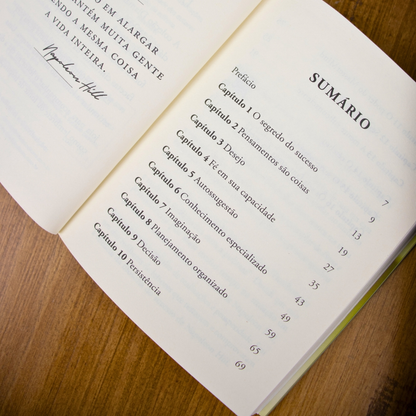 O EM ALARGAR
ANTÉM MUITA GENTE
NDO A MESMA COISA
A VIDA INTEIRA.
Napoleon Hill
SUMÁRIO
Prefácio 7
Capítulo 1 O segredo do sucesso 9
Capítulo 2 Pensamentos são coisas 13
Capítulo 3 Desejo 19
Capítulo 4 Fé em sua capacidade 27
Capítulo 5 Autossugestão 35
Capítulo 6 Conhecimento especializado 43
Capítulo 7 Imaginação 49
Capítulo 8 Planejamento organizado 59
Capítulo 9 Decisão 65
Capítulo 10 Persistência 69